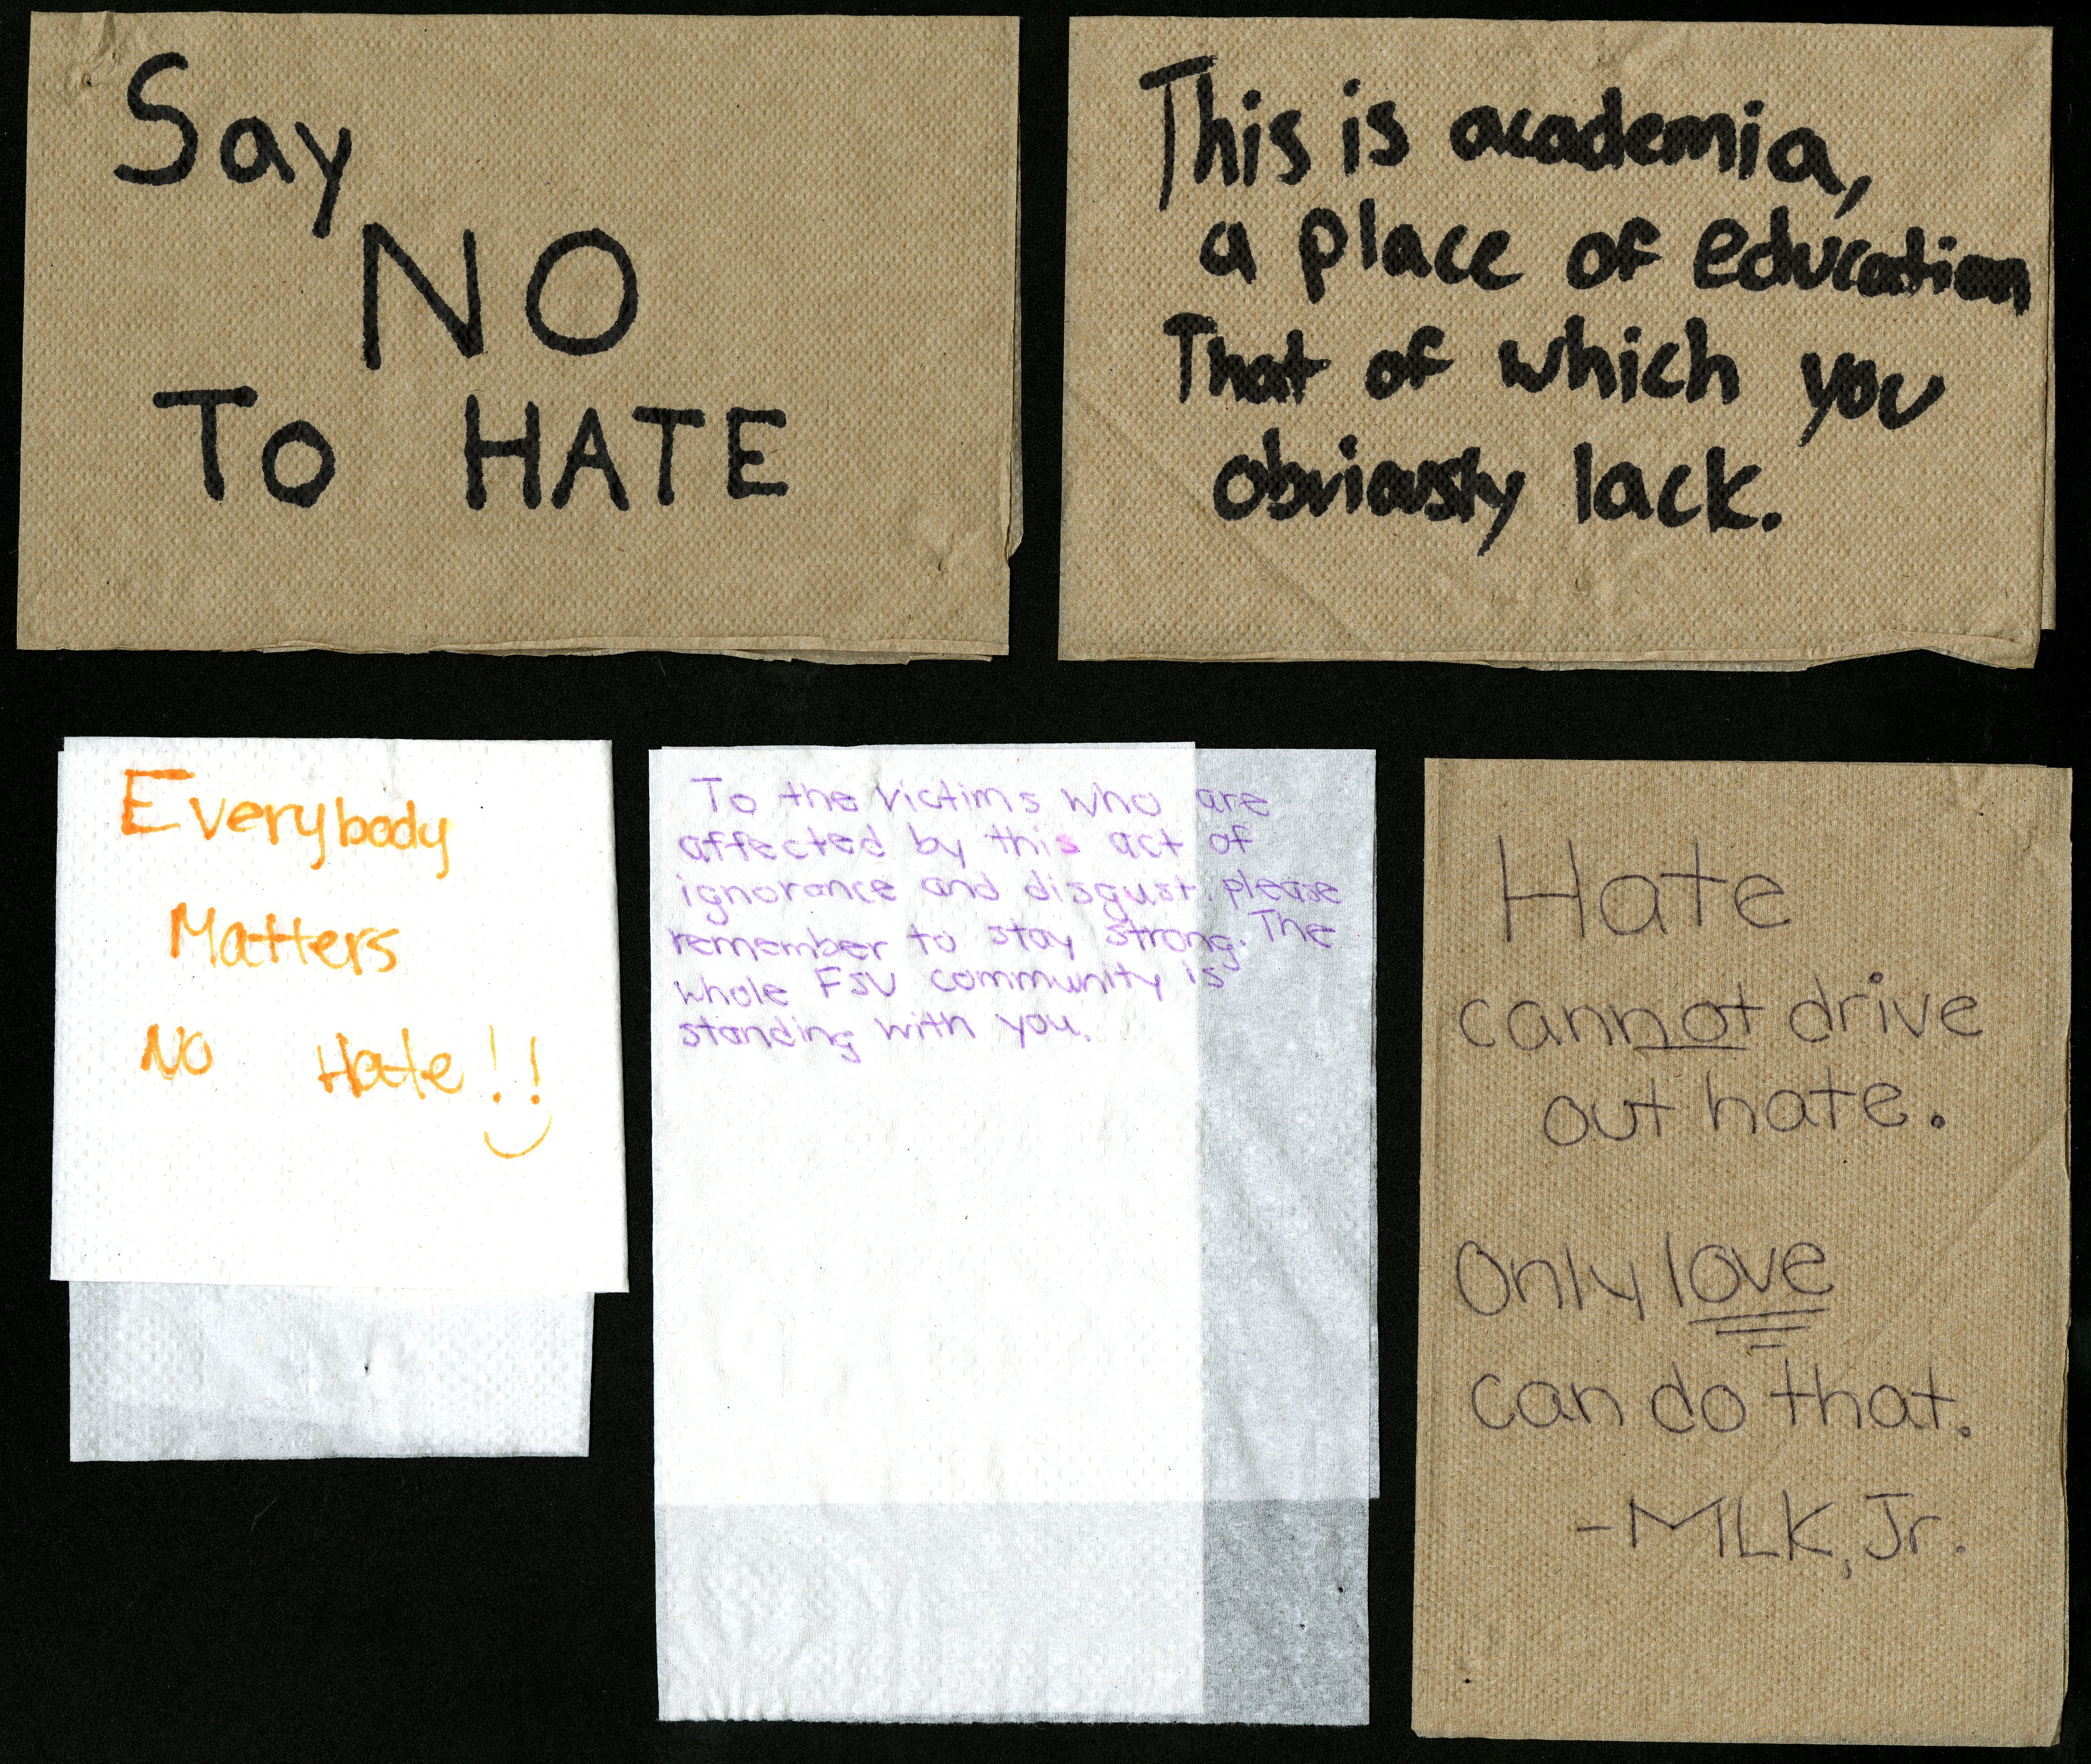 Say
NO
To HATE
This is academia,
a place of education
That of which you
obviously lack.
Everybody
Matters
No Hate!!
To the victims who are
affected by this act of
ignorance and disgust, please
remember to stay strong. The
whole FSU community is
standing with you.
Hate
cannot drive
out hate.
Only love
can do that.
-MLK, Jr.